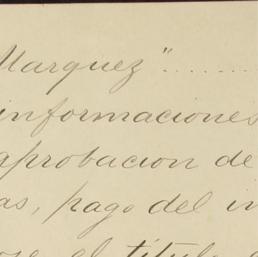 Marquez" ......
informaciones
aprobacion de
as, pago del in
el titulo